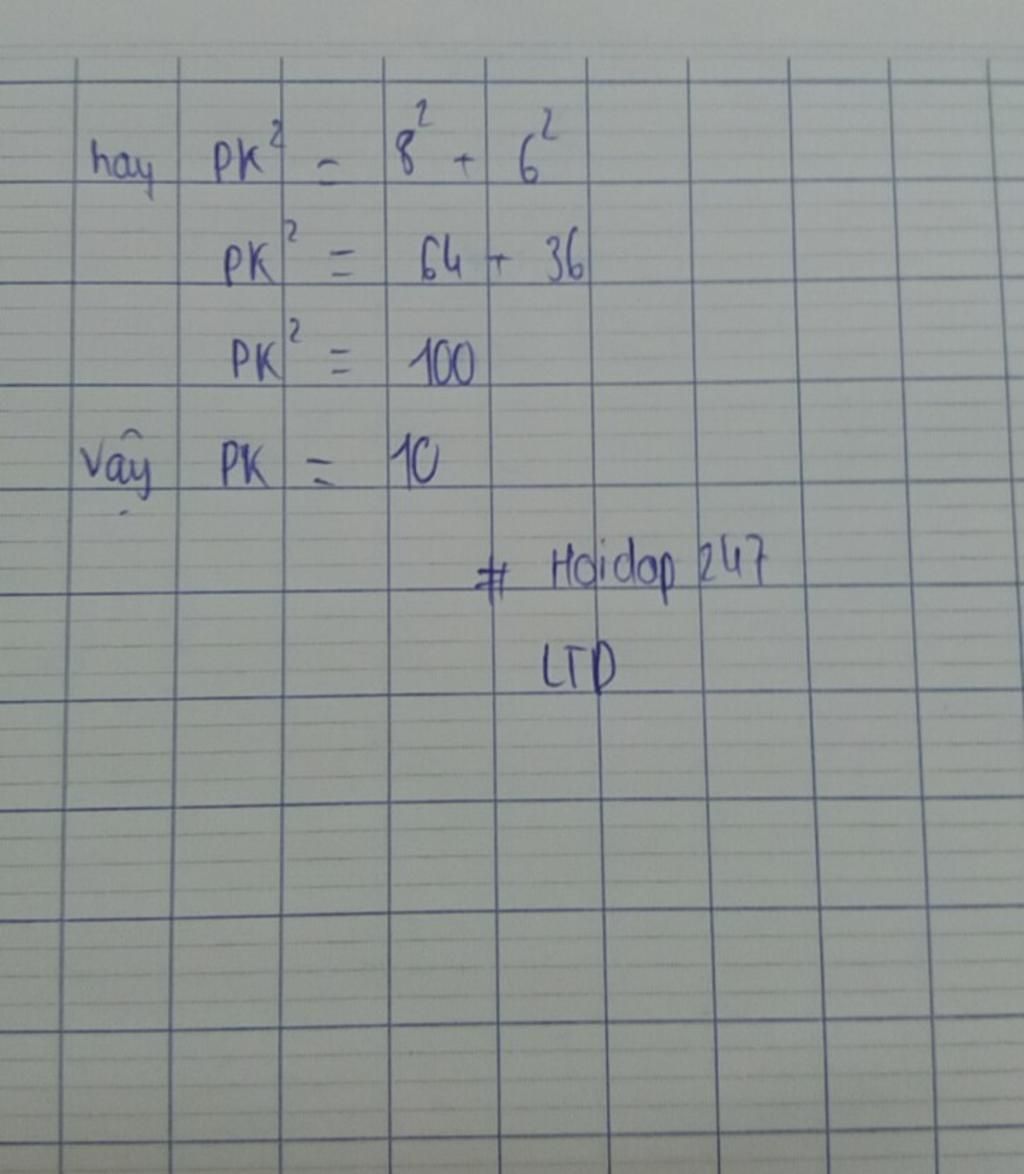 hay PK² = 8² + 6²
PK² = 64 + 36
PK² = 100
Vậy PK = 10
# Hoidap 247
LTD